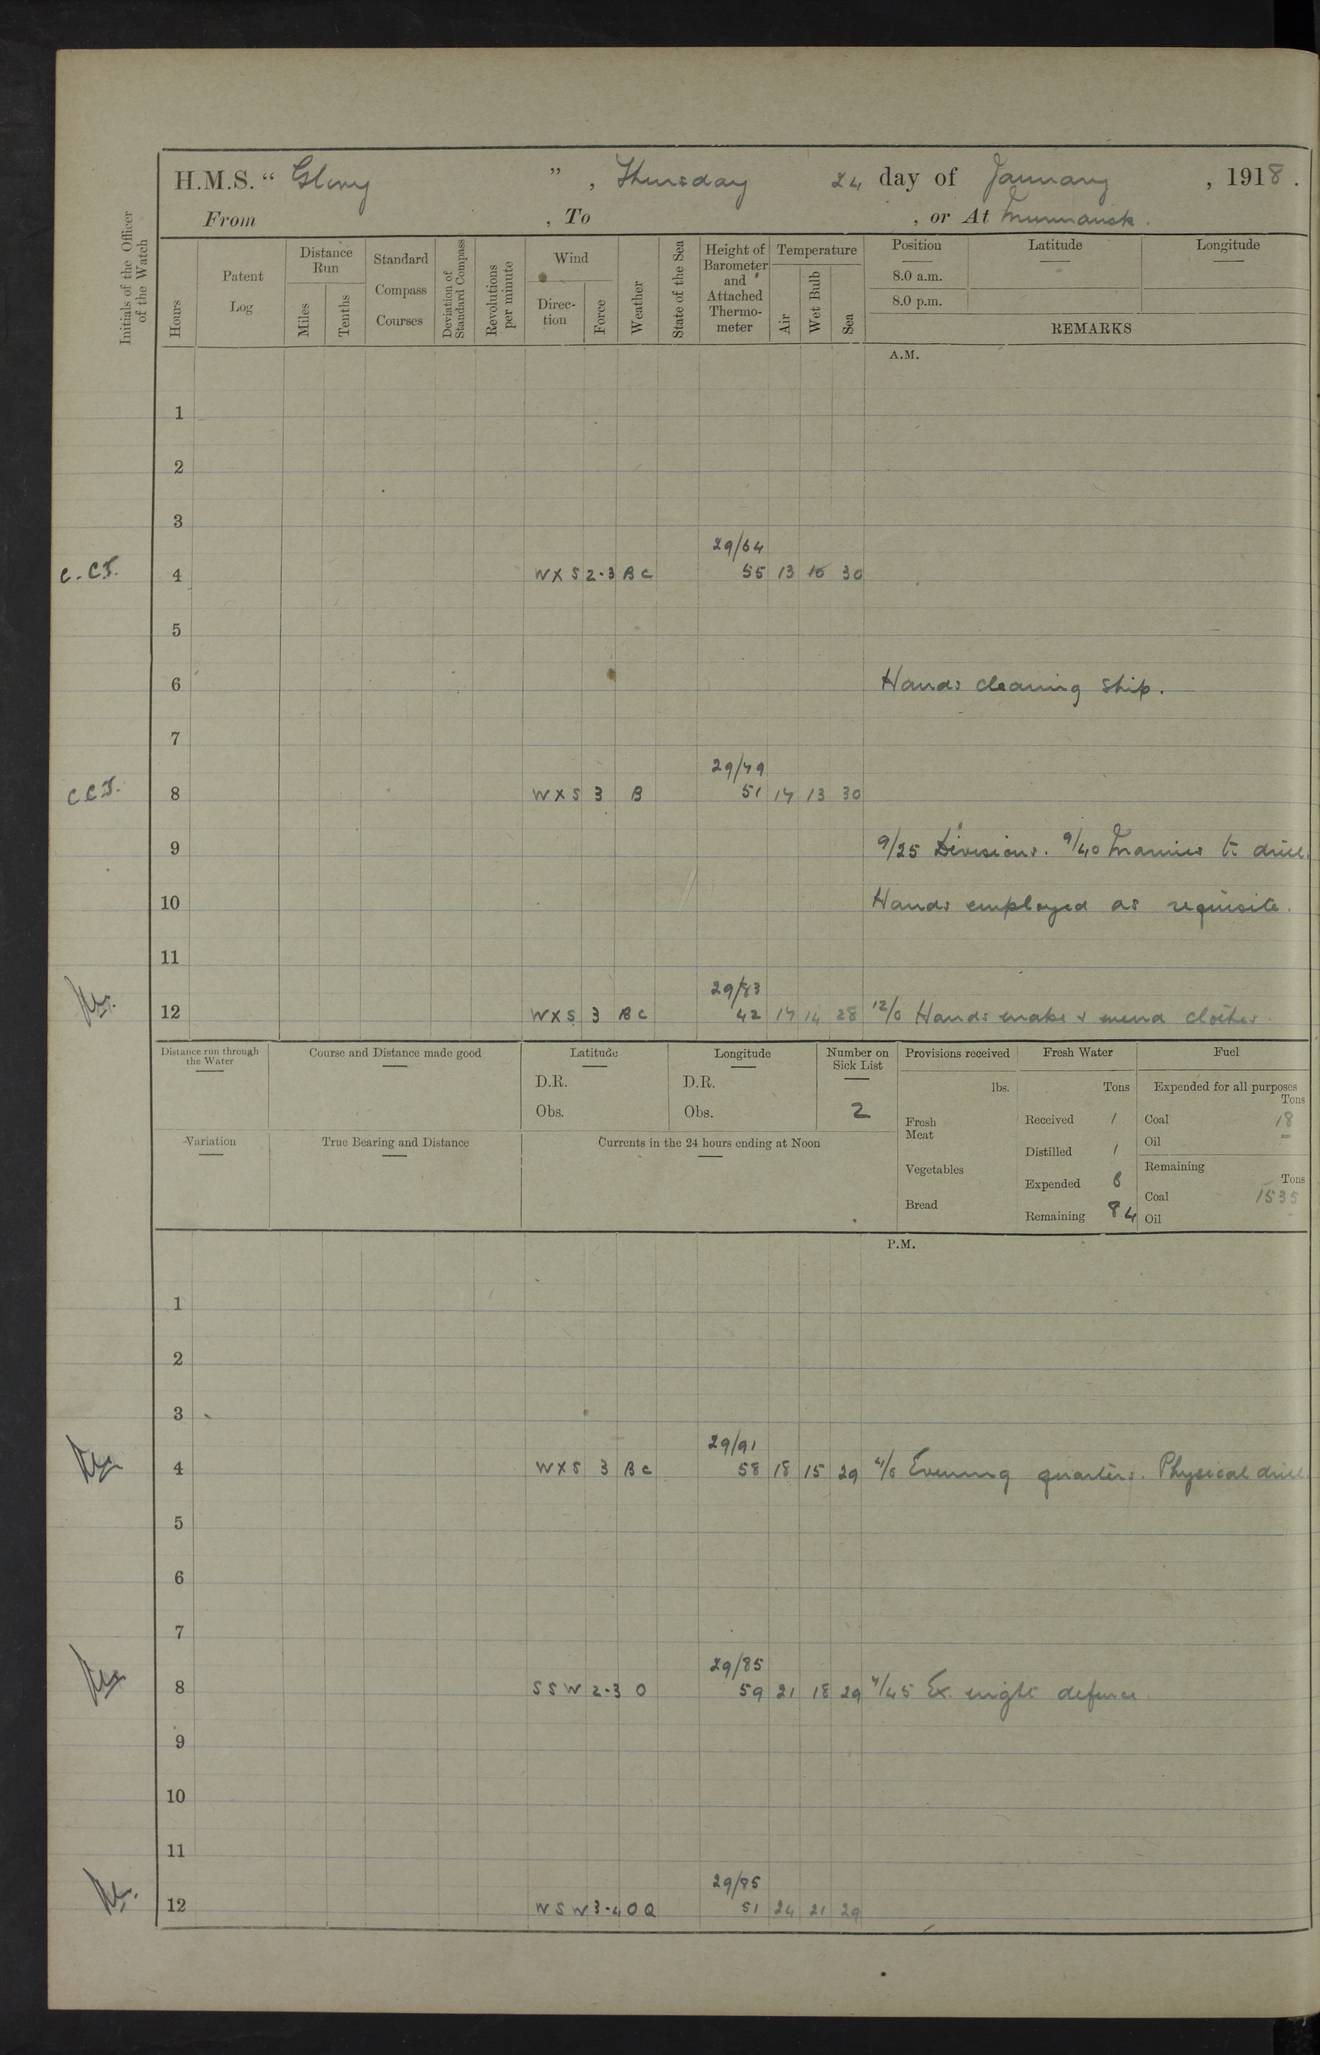 H.M.S. “ Glory ” , Thursday 24 day of January , 1918 .
From , To , or At Murmansk .
Initials of the Officer of the Watch
Hours
Patent Log
Distance Run
Miles
Tenths
Standard Compass Courses
Deviation of Standard Compass
Revolutions per minute
Wind
Direc-tion
Force
Weather
State of the Sea
Height of Barometer and Attached Thermo-meter
Temperature
Air
Wet Bulb
Sea
Position
Latitude
Longitude
8.0 a.m.
8.0 p.m.
REMARKS
A.M.
1
2
3
29/64
C.C.J. 4 W X S 2·3 B C 55 13 30
5
6 Hands cleaning ship.
7
29/79
C.C.J. 8 W X S 3 B 51 14 13 30
9 9/25 Divisions. 9/40 Marines to drill.
10 Hands employed as requisite.
11
29/83
12 W X S 3 B C 42 17 14 28 12/0 Hands make & mend clothes.
Distance run through the Water
Course and Distance made good
Latitude
Longitude
Number on Sick List
Provisions received
Fresh Water
Fuel
D.R.
D.R.
lbs.
Tons
Expended for all purposes
Tons
Obs.
Obs.
2
Fresh Meat
Received 1
Coal 18
Oil –
Variation
True Bearing and Distance
Currents in the 24 hours ending at Noon
Distilled 1
Vegetables
Remaining
Tons
Expended 6
Coal 1535
Bread
Remaining 84
Oil -
P.M.
1
2
3
29/91
4 W X S 3 B C 58 18 15 29 4/0 Evening quarters. Physical drill.
5
6
7
29/85
8 S S W 2·3 O 59 21 18 29 7/45 Ex. night defence.
9
10
11
29/85
12 W S W 3·4 O Q 51 24 21 29